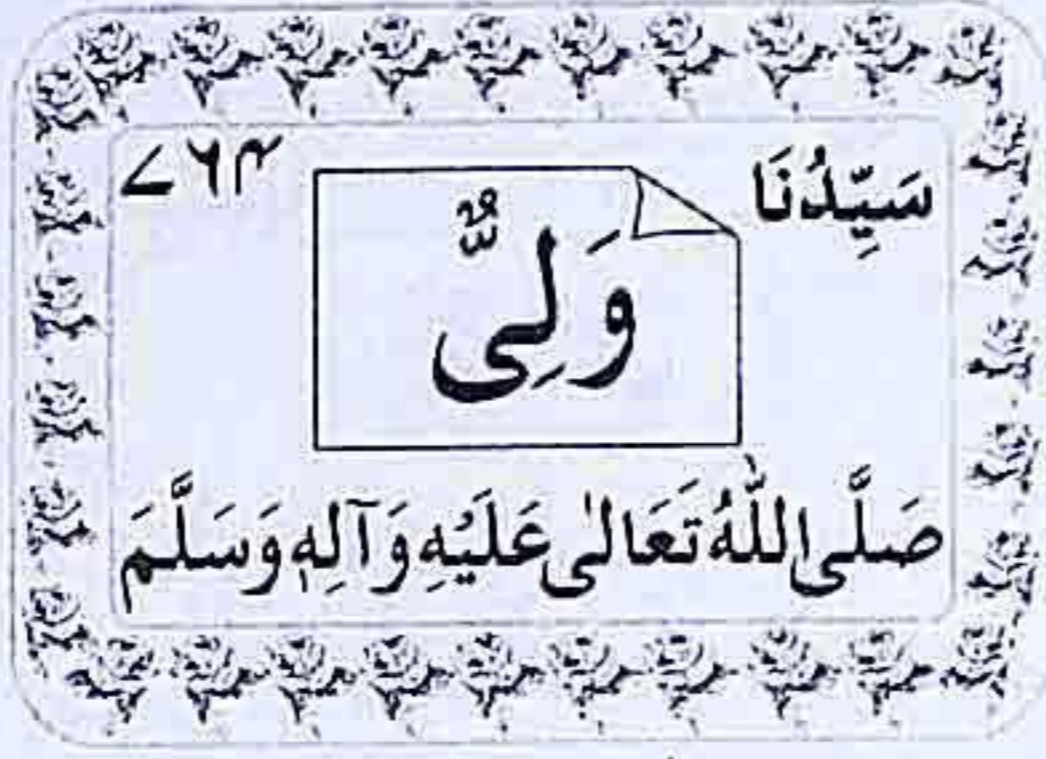 سَيِّدُنَا
۷۶۴
وَلِیٌّ
صَلَّی اللّٰهُ تَعَالٰی عَلَیْهِ وَآلِهٖ وَسَلَّمَ